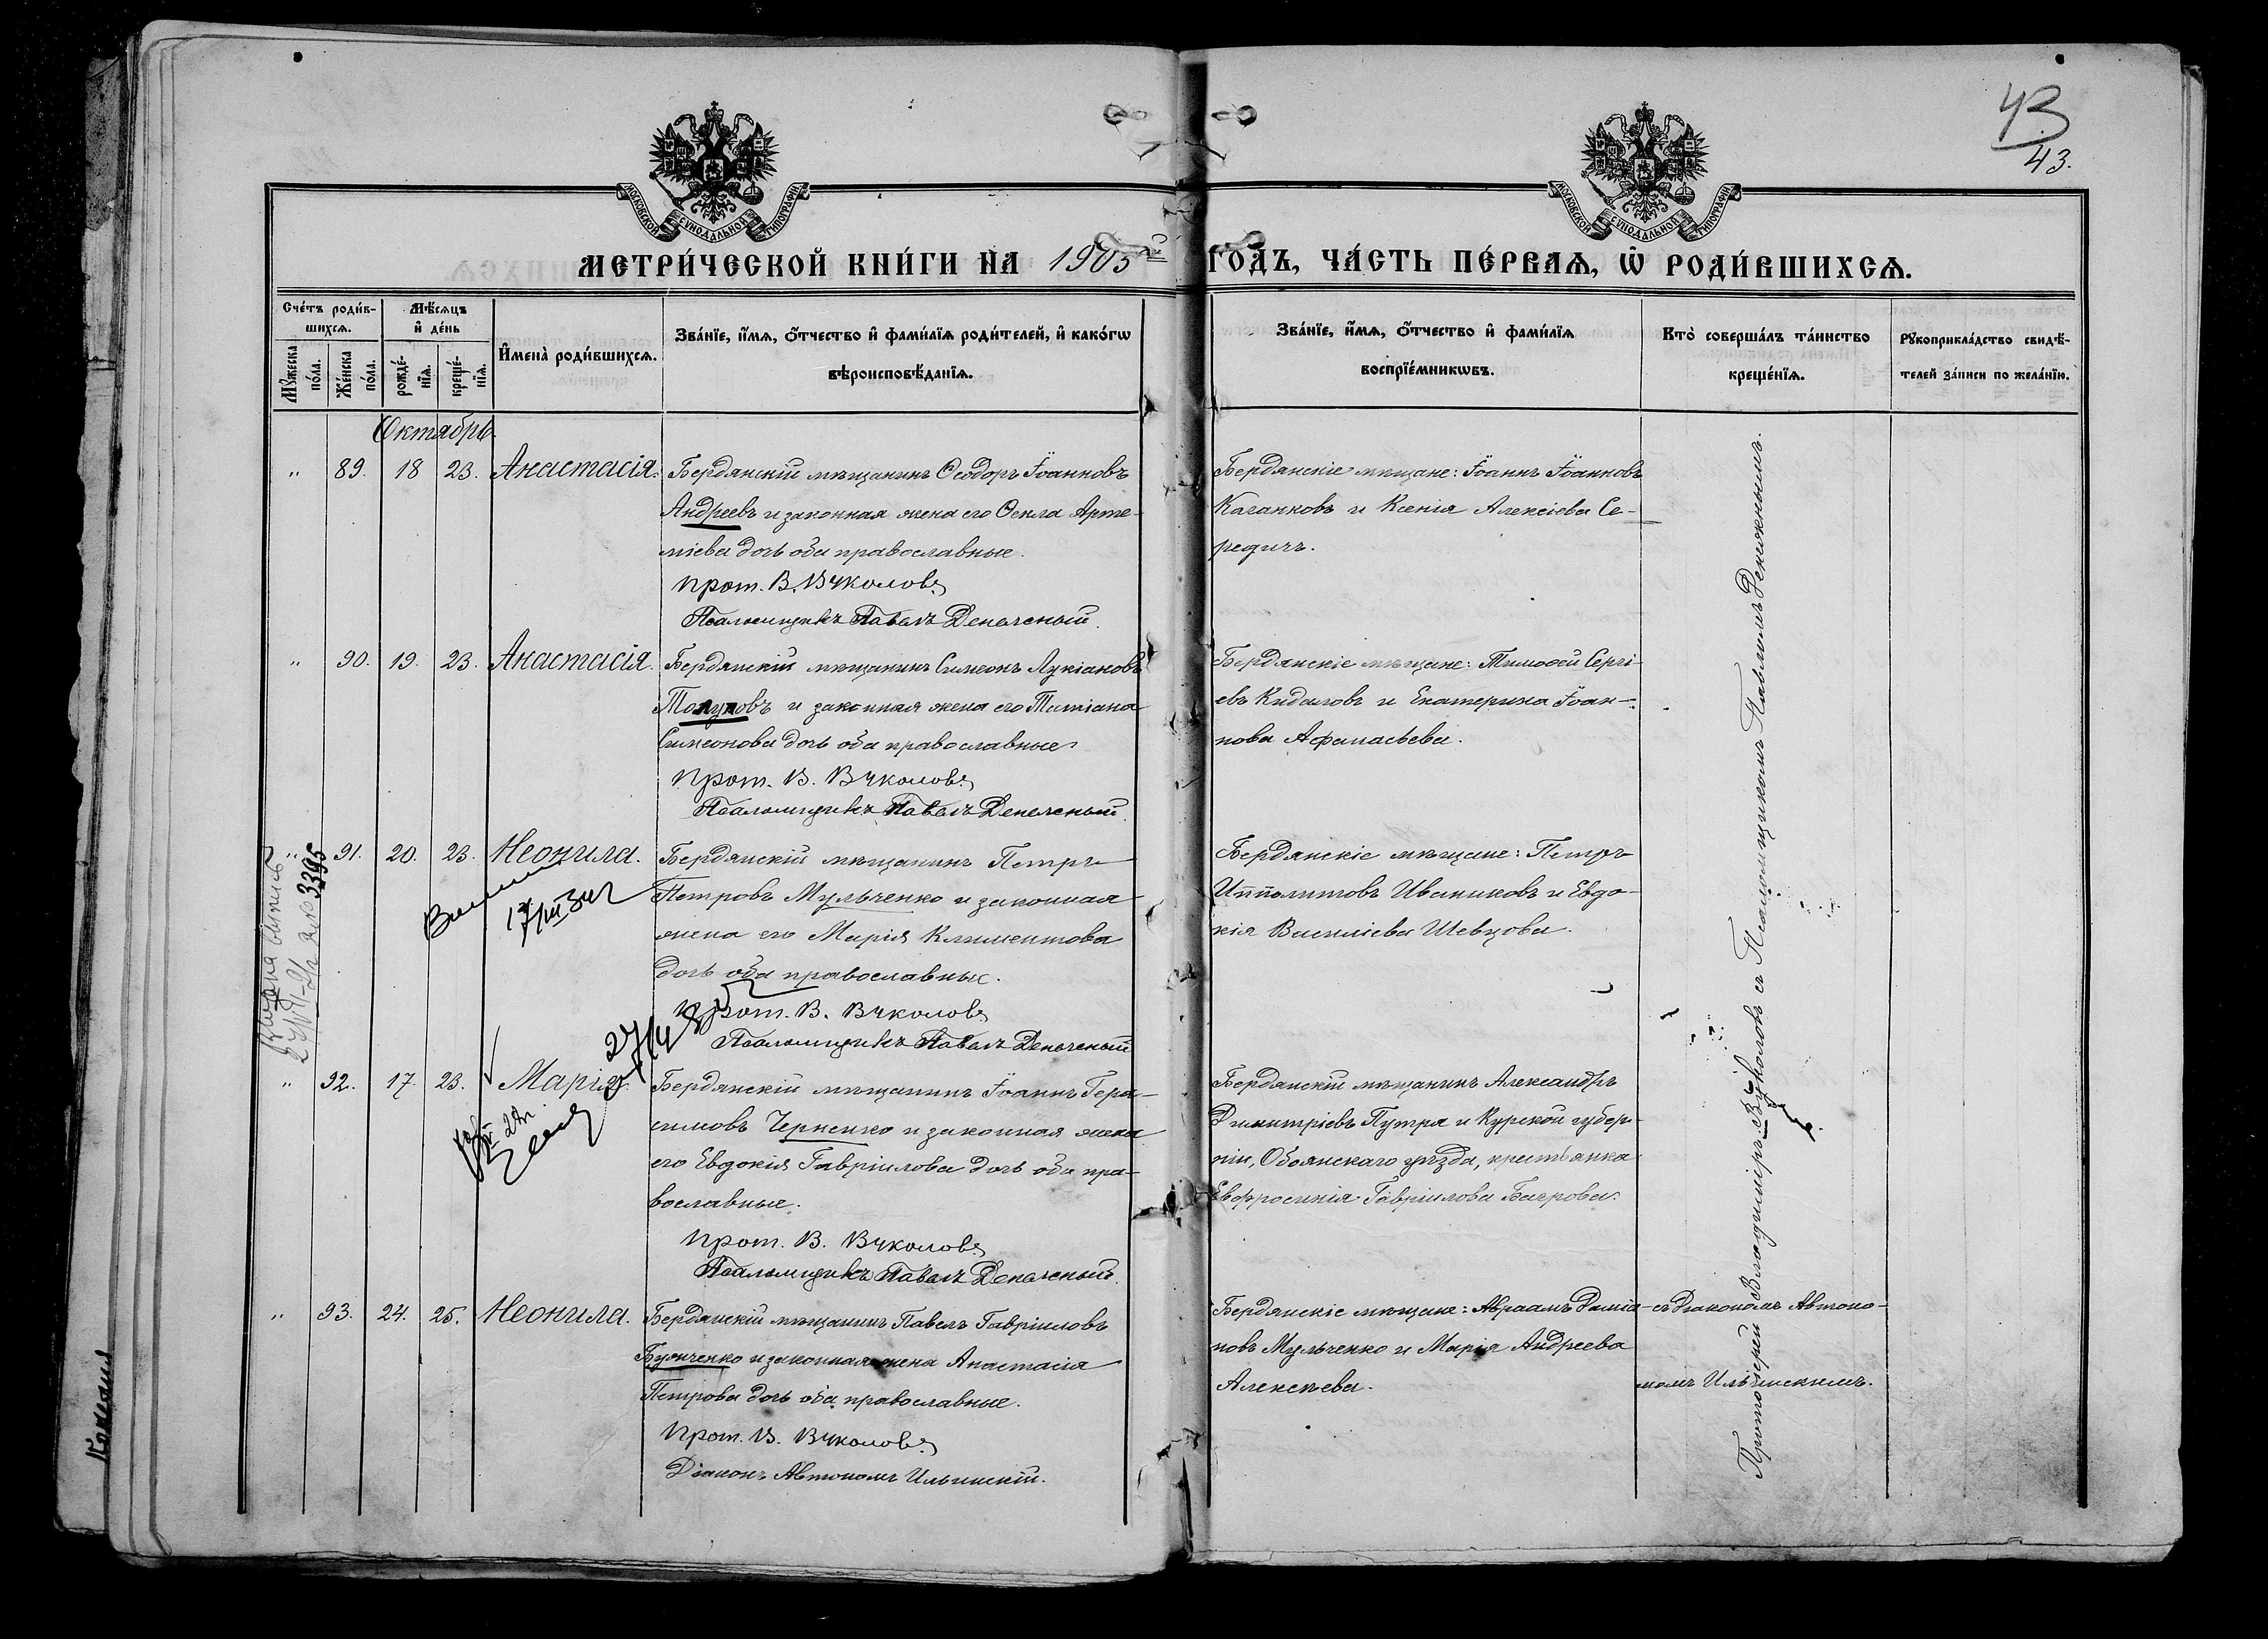 43
43.
МОСКОВСКОЙ СУНОДАЛЬНОЙ ТИПОГРАФІИ
МОСКОВСКОЙ СУНОДАЛЬНОЙ ТИПОГРАФІИ
МЕТРИ́ЧЕСКОЙ КНИ́ГИ НА 1905й ГО́ДЪ, ЧА́СТЬ ПЕ́РВАѦ, Ѡ҆ РОДИ́ВШИХСѦ.
Сче́тъ роди́в-
шихсѧ.
Мꙋ́жеска по́ла.
Же́нска по́ла.
Мѣ́сѧцъ
и҆ де́нь
рожде́-
нїѧ.
креще́-
нїѧ.
И҆мена̀ роди́вшихсѧ.
Зва́нїе, и҆́мѧ, ѻ҆́тчество и҆ фами́лїѧ роди́телей, и҆ како́гѡ
вѣроисповѣ́данїѧ.
Зва́нїе, и҆́мѧ, ѻ҆́тчество и҆ фами́лїѧ
воспрїе́мникѡвъ.
Кто̀ соверша́лъ та́инство
креще́нїѧ.
Рꙋкоприкла́дство свидѣ́-
телей за́писи по жела́нїю.
Октябрь.
" 89. 18 23. Анастасія. Бердянскій мѣщанинъ Ѳеодоръ Іоанновъ
Андреевъ и законная жена его Ѳекла Арте-
міева дочь оба православные.
Прот. В. Вуколовъ
Псаломщикъ Павелъ Денежный.
Бердянскіе мѣщане: Іоаннъ Іоанновъ
Каганковъ и Ксенія Алексіева Се-
редичъ.
" 90. 19. 23. Анастасія. Бердянскій мѣщанинъ Симеонъ Лукіановъ
Толуповъ и законная жена его Татіана
Симеонова дочь оба православные
Прот. В. Вуколовъ
Псаломщикъ Павелъ Денежный.
Бердянскіе мѣщане: Тимоѳей Сергі-
евъ Кидаловъ и Екатерина Іоан-
нова Афанасьева.
" 91. 20. 23. Неонила. Бердянскій мѣщанинъ Петръ
Петровъ Мульченко и законная
жена его Марія Климентова
дочь оба православные.
Прот. В. Вуколовъ
Псаломщикъ Павелъ Денежный
Бердянскіе мѣщане: Петръ
Ипполитовъ Иванниковъ и Евдо-
кія Василіева Шевцова.
3395
27/4
" 92. 17. 23. Марія. Бердянскій мѣщанинъ Іоаннъ Гера-
симовъ Черненко и законная жена
его Евдокія Гавріилова дочь оба пра-
вославные.
Прот. В. Вуколовъ
Псаломщикъ Павелъ Денежный.
Бердянскій мѣщанинъ Александръ
Димитріевъ Путря и Курской губер-
ніи, Обоянскаго уѣзда, крестьянка
Евфросинія Гавріилова Багрова.
" 93. 24. 25. Неонила. Бердянскій мѣщанинъ Павелъ Гавріиловъ
Бужченко и законная жена Анастасія
Петрова дочь оба православные.
Прот. В. Вуколовъ
Діаконъ Автономъ Ильинскій.
Бердянскіе мѣщане: Авраамъ Даміа-
новъ Мульченко и Марія Андреева
Алексѣева.
съ Діакономъ Автоно-
момъ Ильинскимъ.
Протоіерей Владиміръ Вуколовъ съ Псаломщикомъ Павломъ Денежнымъ.